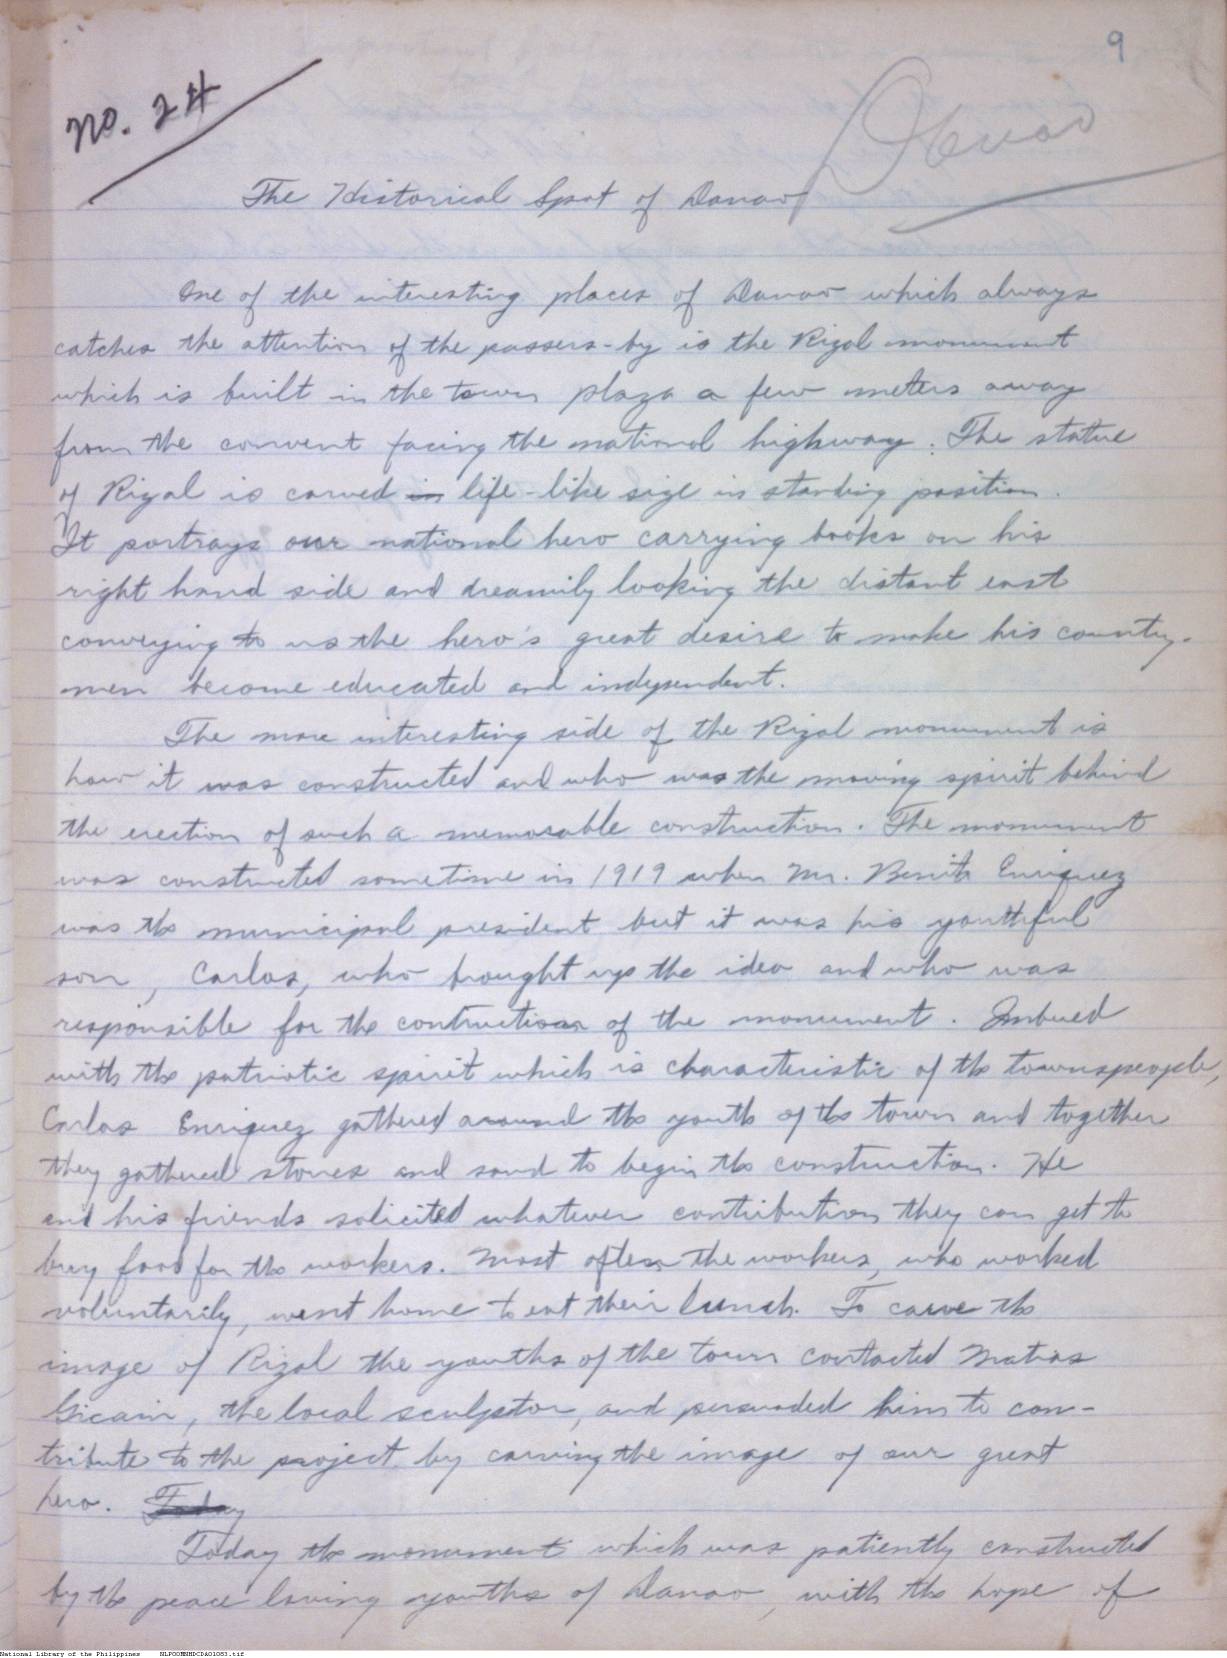 9
No. 24
Danao
The Historical Spot of Danao
One of the interesting places of Danao which always
catches the attention of the passers-by is the Rizal monument
which is built in the town plaza a few meters away
from the convent facing the national highway. The statue
of Rizal is carved in life-like size in standing position.
It portrays our national hero carrying books on his
right hand side and dreamily looking the distant east
conveying to us the hero's great desire to make his country-
men become educated and independent.
The more interesting side of the Rizal monument is
how it was constructed and who was the moving spirit behind
the erection of such a memorable construction. The monument
was constructed sometime in 1919 when Mr. Benito Enriquez
was the municipal president but it was his youthful
son, Carlos, who brought up the idea and who was
responsible for the contruction of the monument. Imbued
with the patriotic spirit which is characteristic of the townspeople,
Carlos Enriquez gathered around the youth of the town and together
they gathered stones and sand to begin the construction. He
and his friends solicited whatever contribution they can get to
buy food for the workers. Most often the workers, who worked
voluntarily, went home to eat their lunch. To carve the
image of Rizal the youths of the town contacted Matias
the local sculptor, and persuaded him to con-
tribute to the project by carving the image of our great
hero. Today
Today the monument which was patiently constructed
by the peace loving youths of Danao, with the hope of
National Library of the Philippines NLPOOMNHDCDA01083.tif